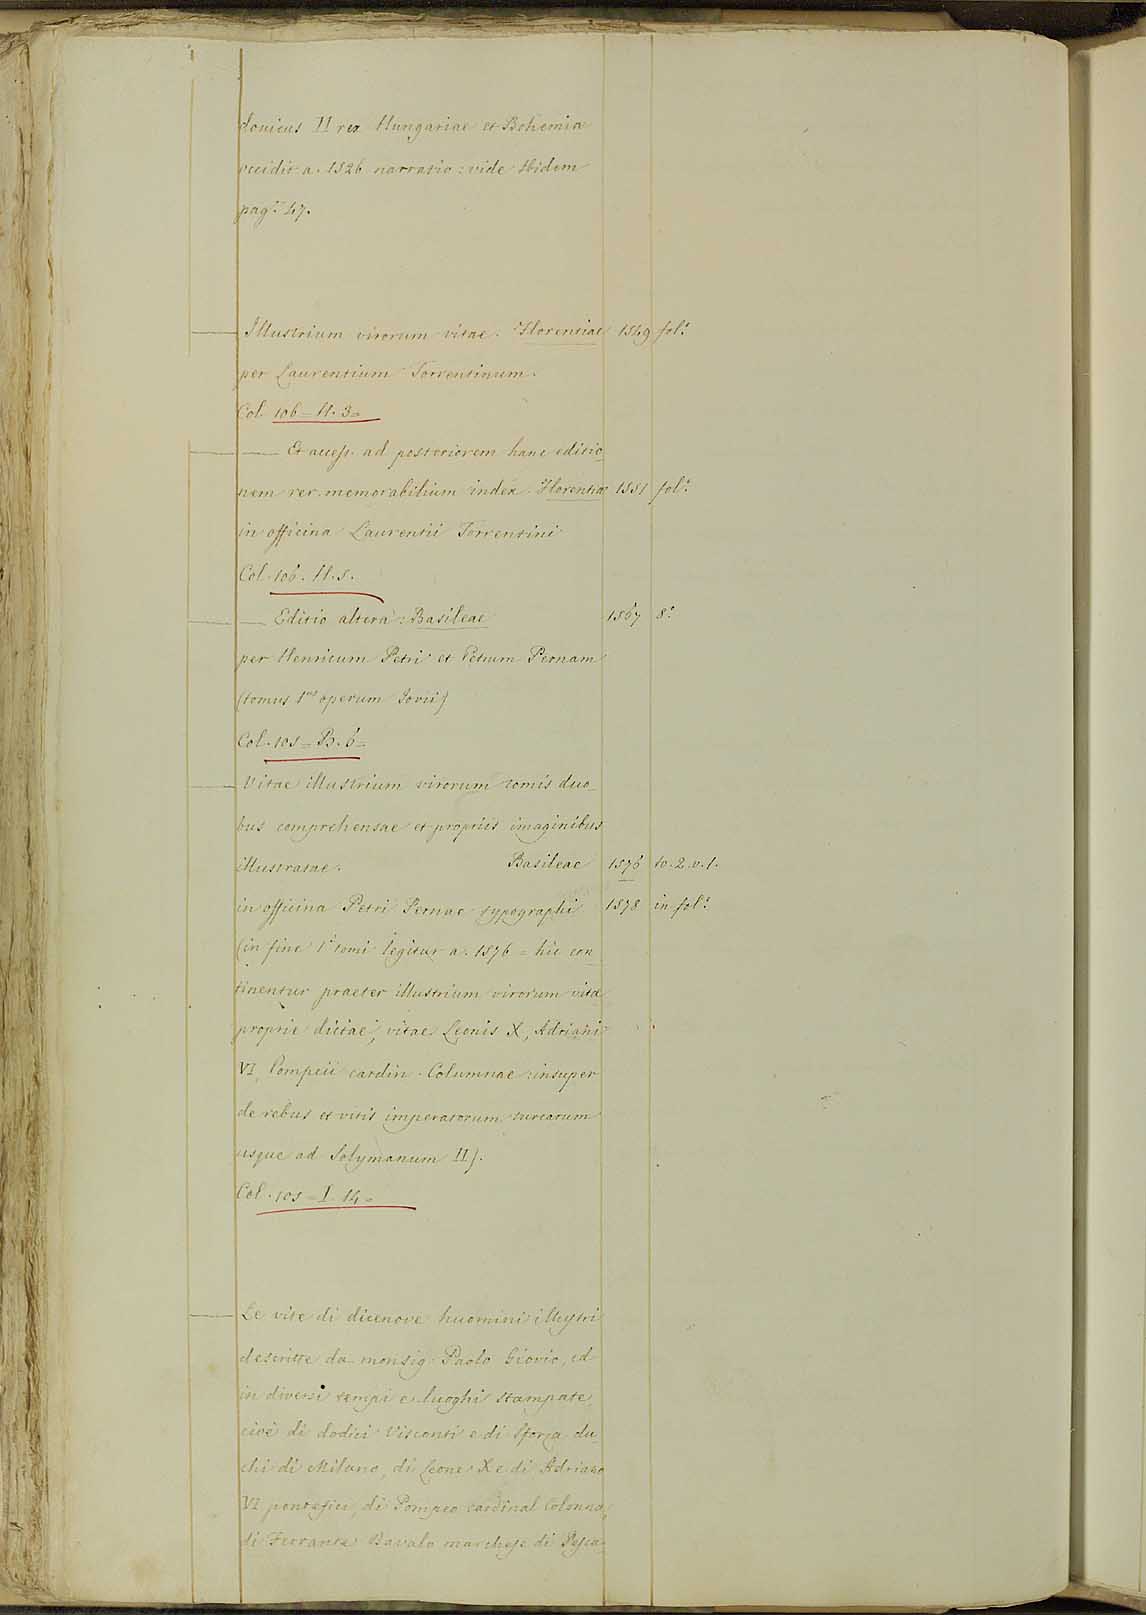 dovicus II rex Hungariae et Bohemia
occidit a. 1526 narratio: vide Ibidem
pag.ª 47.
— Illustrium virorum vitae. Florentiae 1549 fol.º
per Laurentium Torrentinum.
Col. 106 = H. 3 =
— — Et access. ad posteriorem hanc editio_
nem rer. memorabilium index. Florentiæ 1551 fol.º
in officina Laurentii Torrentini
Col. 106. H. 5.
— — Editio altera: Basileae 1567 8.º
per Henricum Petri et Petrum Pernam
(tomus 1.us operum Jovii)
Col. 105 = B. 6 =
— Vitae illustrium virorum tomis duo_
bus comprehensae et propriis imaginibus
illustratae. Basileae 1576 to. 2. v. 1.
in officina Petri Pernae typographi 1578 in fol.º
(in fine 1.i tomi legitur a. 1576 = hic con_
tinentur praeter illustrium virorum vitæ
proprie dictae, vitae Leonis X, Adriani
VI, Pompeii cardin. Columnae: insuper
de rebus et vitis imperatorum turcarum
usque ad Solymanum II).
Col. 105 = I. 14 =
— Le vite di dicenove huomini illustri
descritte da monsig. Paolo Giovio, ed
in diversi tempi e luoghi stampate,
cioè di dodici Visconti e di Sforza du_
chi di Milano, di Leone X e di Adriano
VI pontefici, di Pompeo cardinal Colonna,
di Ferrante Davalo marchese di Pesca_